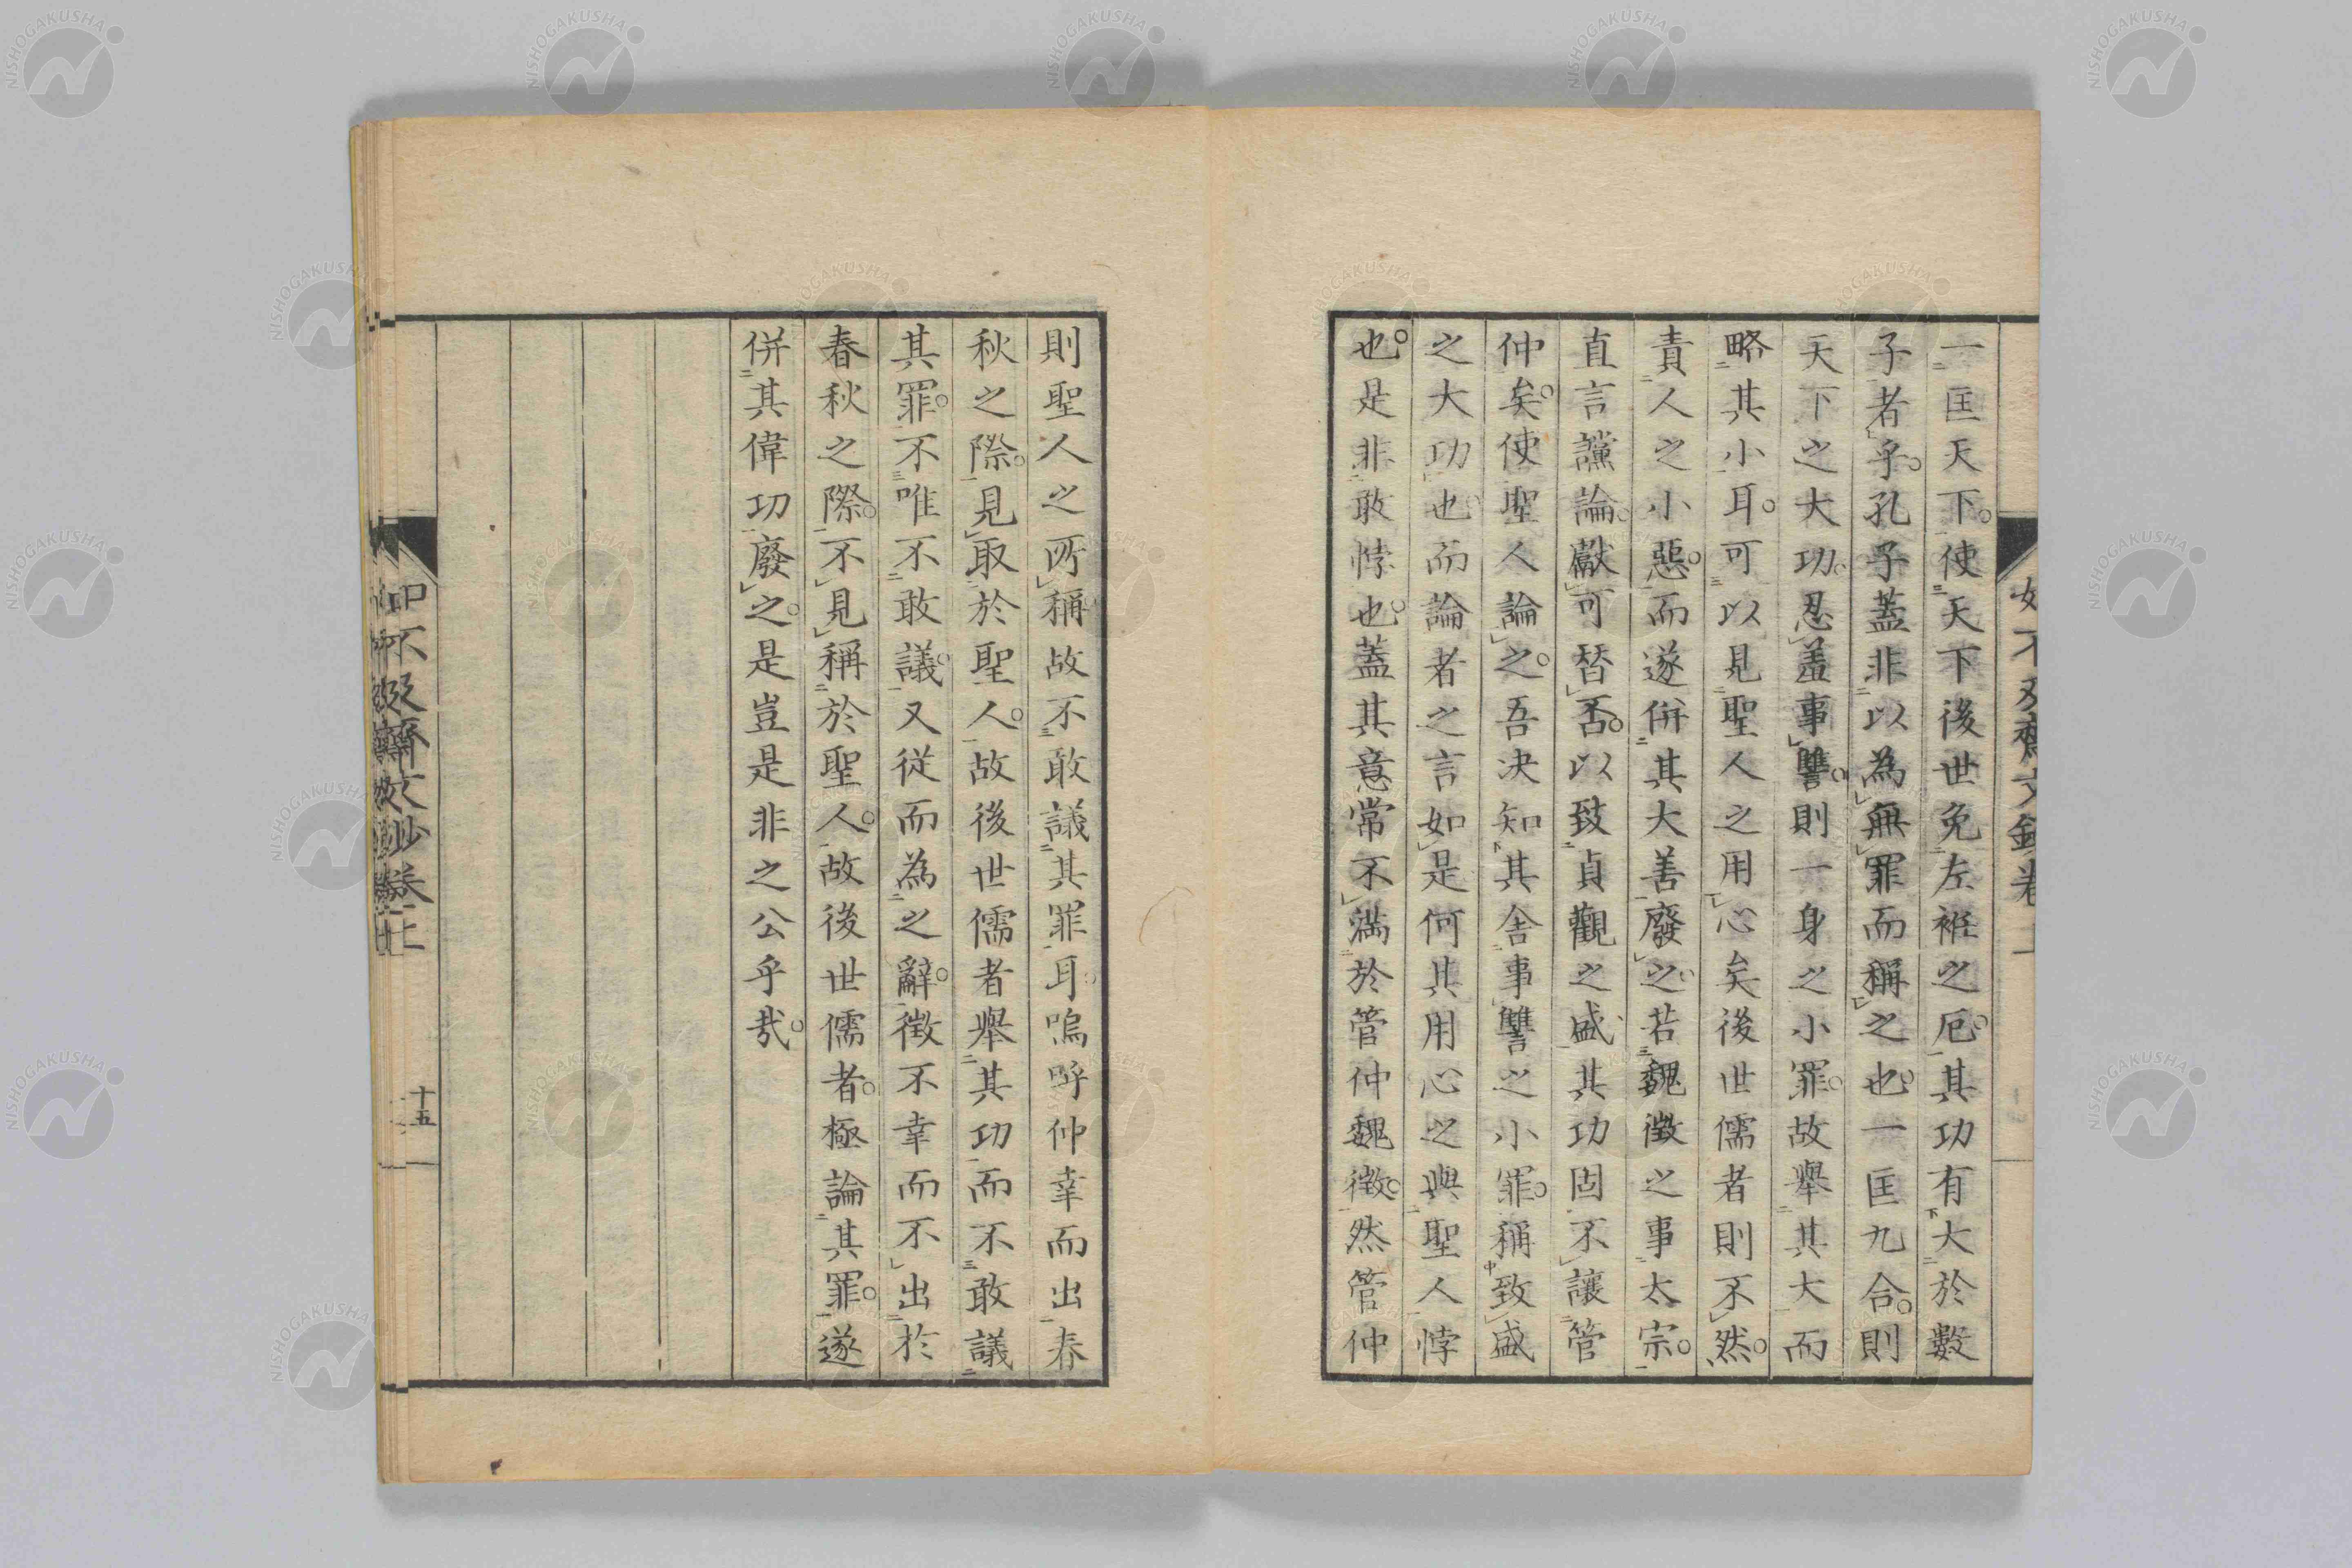 一匡天下。使天下後世免左袵之厄。其功有大於數
子者乎。孔子蓋非以為無罪而稱之也。一匡九合。則
天下之大功。忍羞事讐。則一身之小罪。故舉其大而
略其小耳。可以見聖人之用心矣後世儒者則不然。
責人之小惡。而遂併其大善廢之。若魏徵之事太宗。
直言讜論。獻可替否。以致貞觀之盛。其功固不讓管
仲矣。使聖人論之。吾决知其舎事讐之小罪。稱致盛
之大功也。而論者之言如是何其用心之與聖人悖
也。是非敢悖也。蓋其意常不満於管仲魏徵。然管仲
則聖人之所稱故不敢議其罪耳。嗚呼仲幸而出春
秋之際。見取於聖人。故後世儒者舉其功而不敢議
其罪。不唯不敢議。又従而為之辭。徵不幸而不出於
春秋之際。不見稱於聖人。故後世儒者。極論其罪。遂
併其偉功廢之。是豈是非之公乎哉。
十五
NISHOGAKUSHA